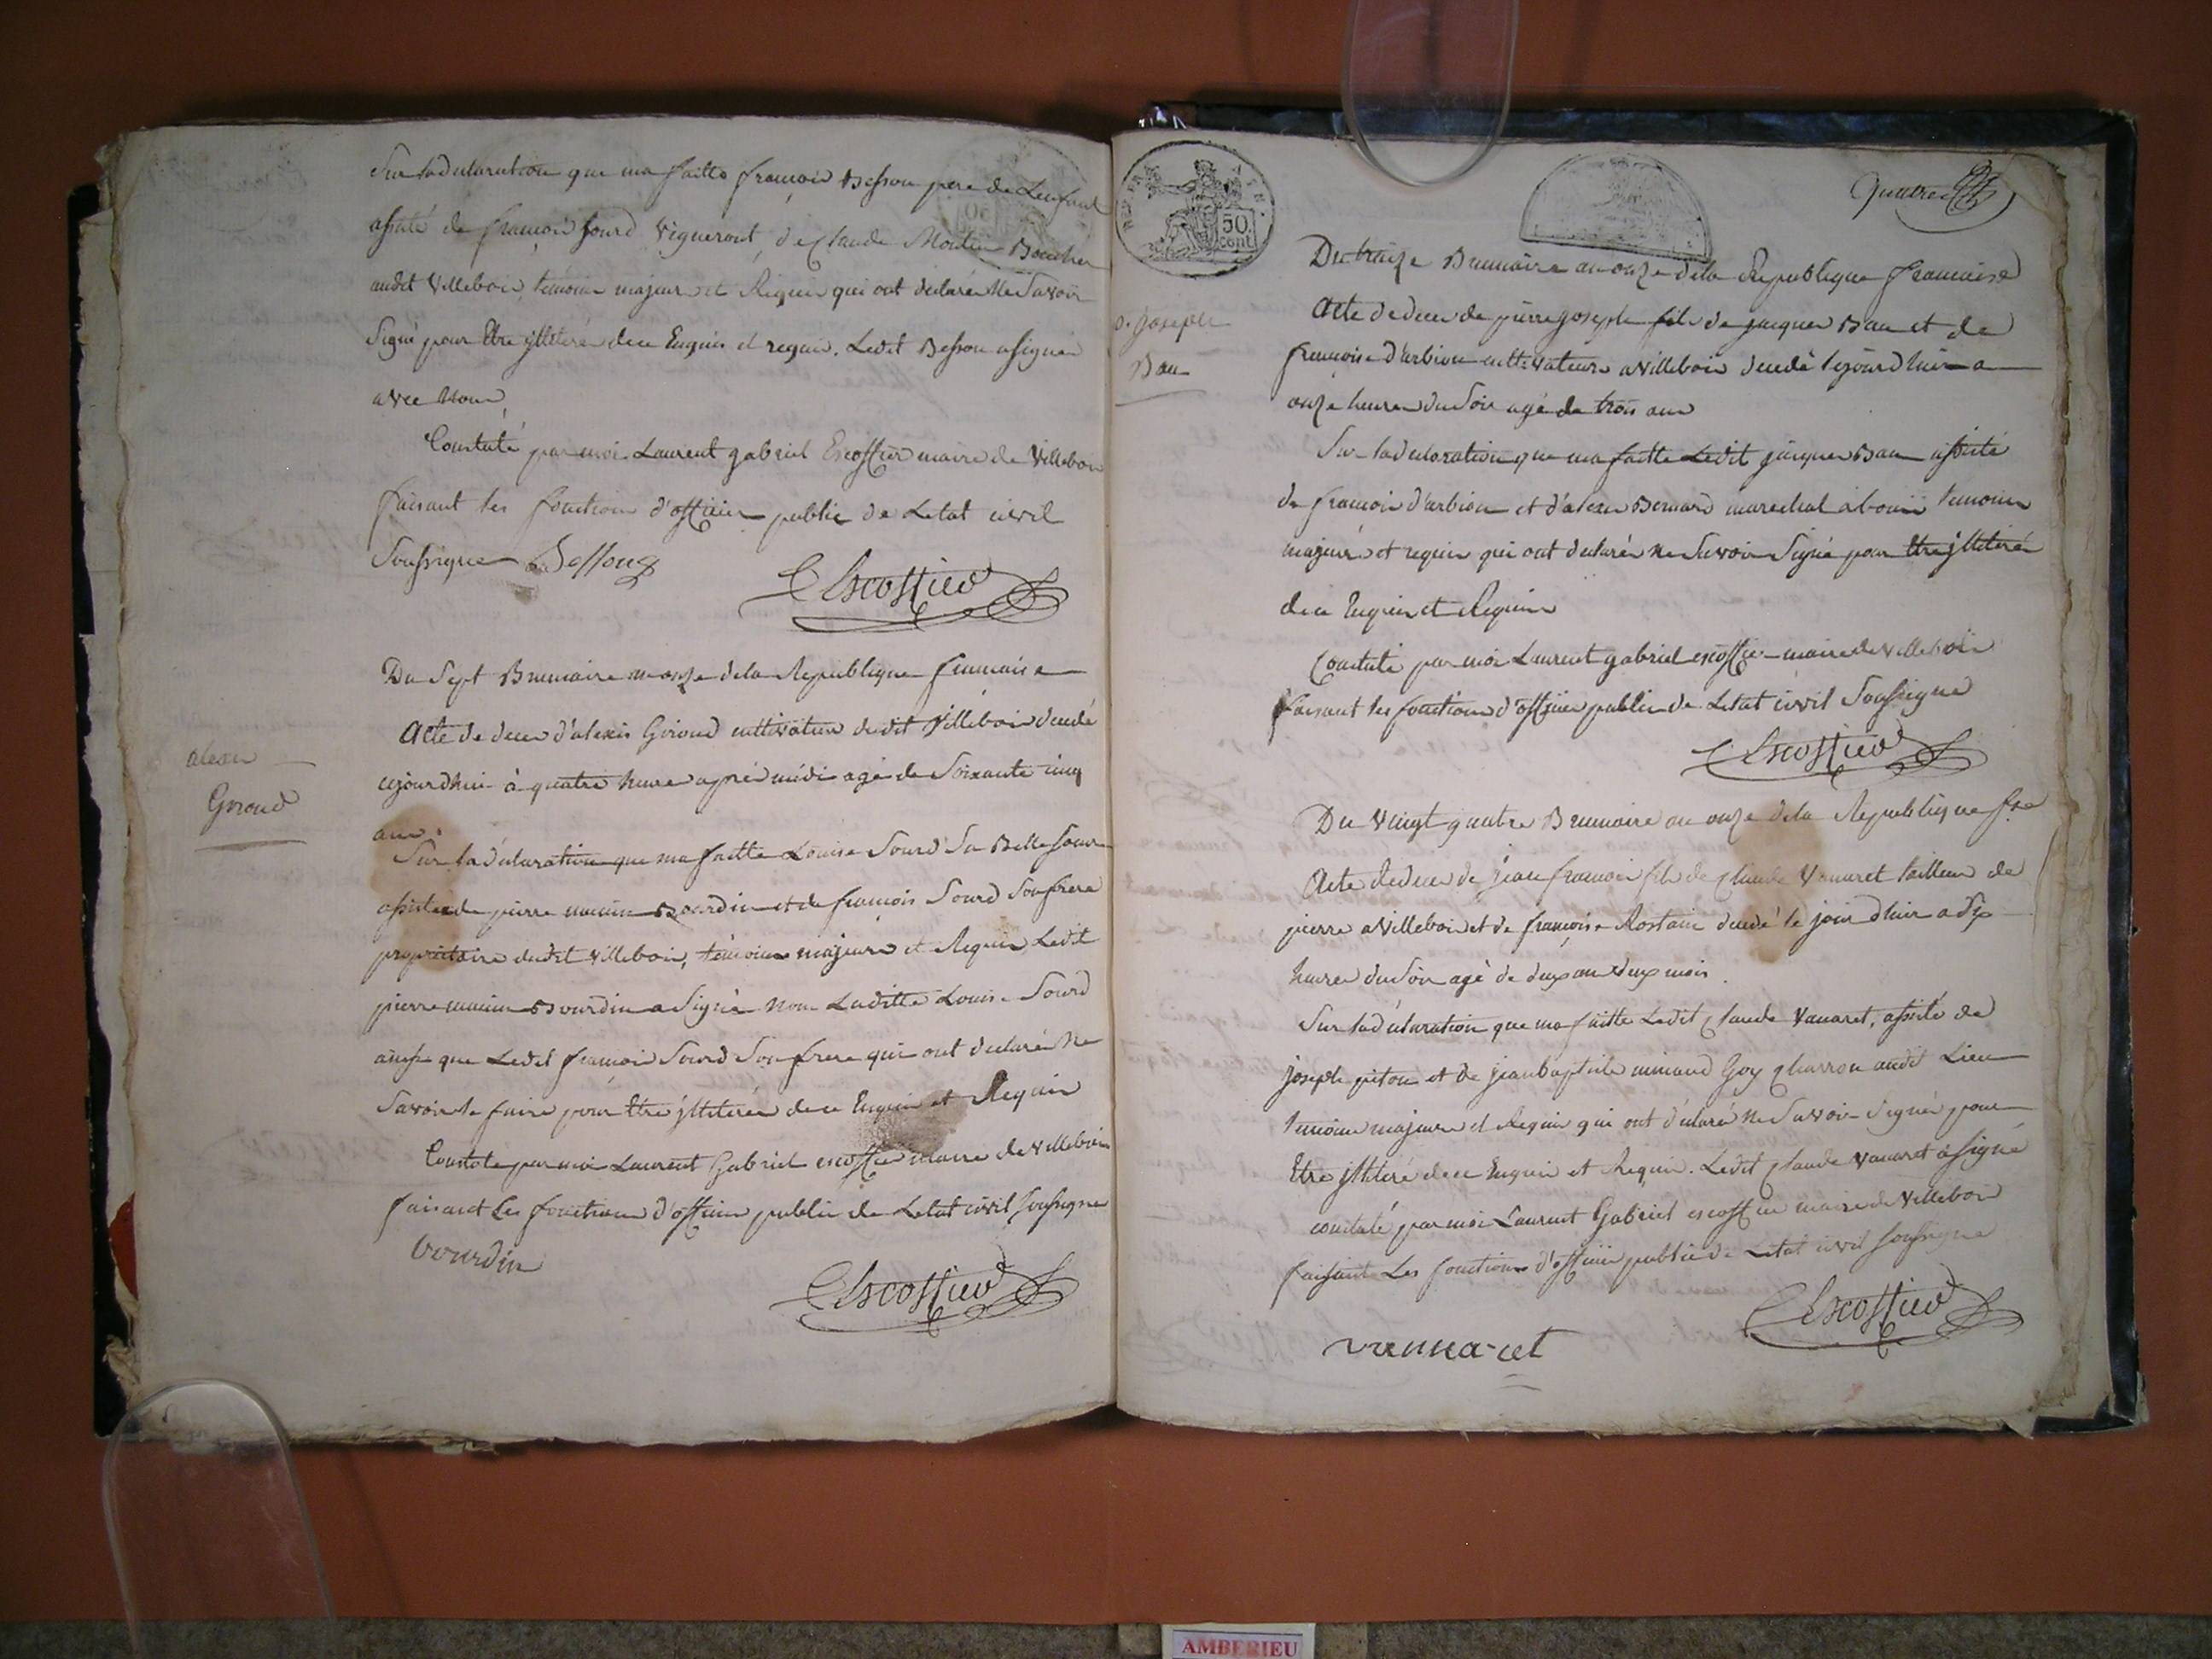 Sur la declaration que ma faitte francois Besson pere de Lenfant
assisté de francois sourd vigneront, de Claude Montin Boucher
audit Villebois, temoins majeurs et Requis qui ont declarés Ne Savoir
Signé pour Etre jlliterés dece Enquis et requis. Ledit Besson a signé
avec nous
Constaté par moi Laurent gabriel Escoffier maire de Villebois
faisant les fonctions d'officier public de Letat civil
Soussigné Besson
Escoffier
alexis
Giroud
Du Sept Brumaire an onze dela Republique francaise
Acte de deces d'alexis Giroud cultivateur dudit Villebois decedé
cejourdhui à quatre heure après midi agé de Soixante cinq
ans
Sur la declaration que ma faitte Louise Sourd Sa Belle soeur
assistée de pierre Bourdin et de françois Sourd Son frere
proprietaire dudit Villebois, témoins majeurs et Requis Ledit
pierre Bourdin a Signé Non Laditte Louise Sourd
ainsi que Ledit francois Sourd Son frere qui ont declaré Ne
Savoir le faire pour Etre jlliterés dece Enquis et Requis
Constaté par moi Laurent Gabriel escoffier maire de Villebois
faisant Les fonctions d'officier public de Letat civil soussigné
bourdin
Escoffier
REP. FRA.
50 cent
Quatre
p. joseph
Bau
Du traize Brumaire an onze dela Republique francaise
Acte de deces de pierre joseph fils de jacques Bau et de
francoise d'arbion cultivateurs a Villebois decedé cejourdhui a
onze heures du Soir agé de trois ans
Sur la declaration que ma faitte Ledit jacques Bau assisté
de francois d'arbion et d'alexis Bernard marechal temoins
majeurs et requis qui ont declarés ne Savoir Signé pour Etre jlliterés
dece Enquis et Requis
Constaté par moi Laurent gabriel escoffier maire de Villebois
faisant les fonctions d'officier public de Letat civil Soussigné
Escoffier
Du Vingt quatre Brumaire an onze dela Republique fse
Acte de deces de jean francois fils de Claude Vanaret tailleur de
pierre a Villebois et de françoise Rostain decedé le jour dhui a dix
heures du Soir agé de deux ans deux mois
Sur la déclaration que ma faitte Ledit Claude Vanaret, assisté de
joseph piton et de jean baptiste Goy charron audit Lieu
temoins majeurs et Requis qui ont déclaré Ne Savoir Signer pour
Etre jlliteré dece Enquis et Requis. Ledit Claude Vanaret a signé
constaté par moi Laurent Gabriel escoffier maire de Villebois
faisant Les fonctions d'officier public de Letat civil soussigné
Escoffier
vanna-ret
AMBERIEU